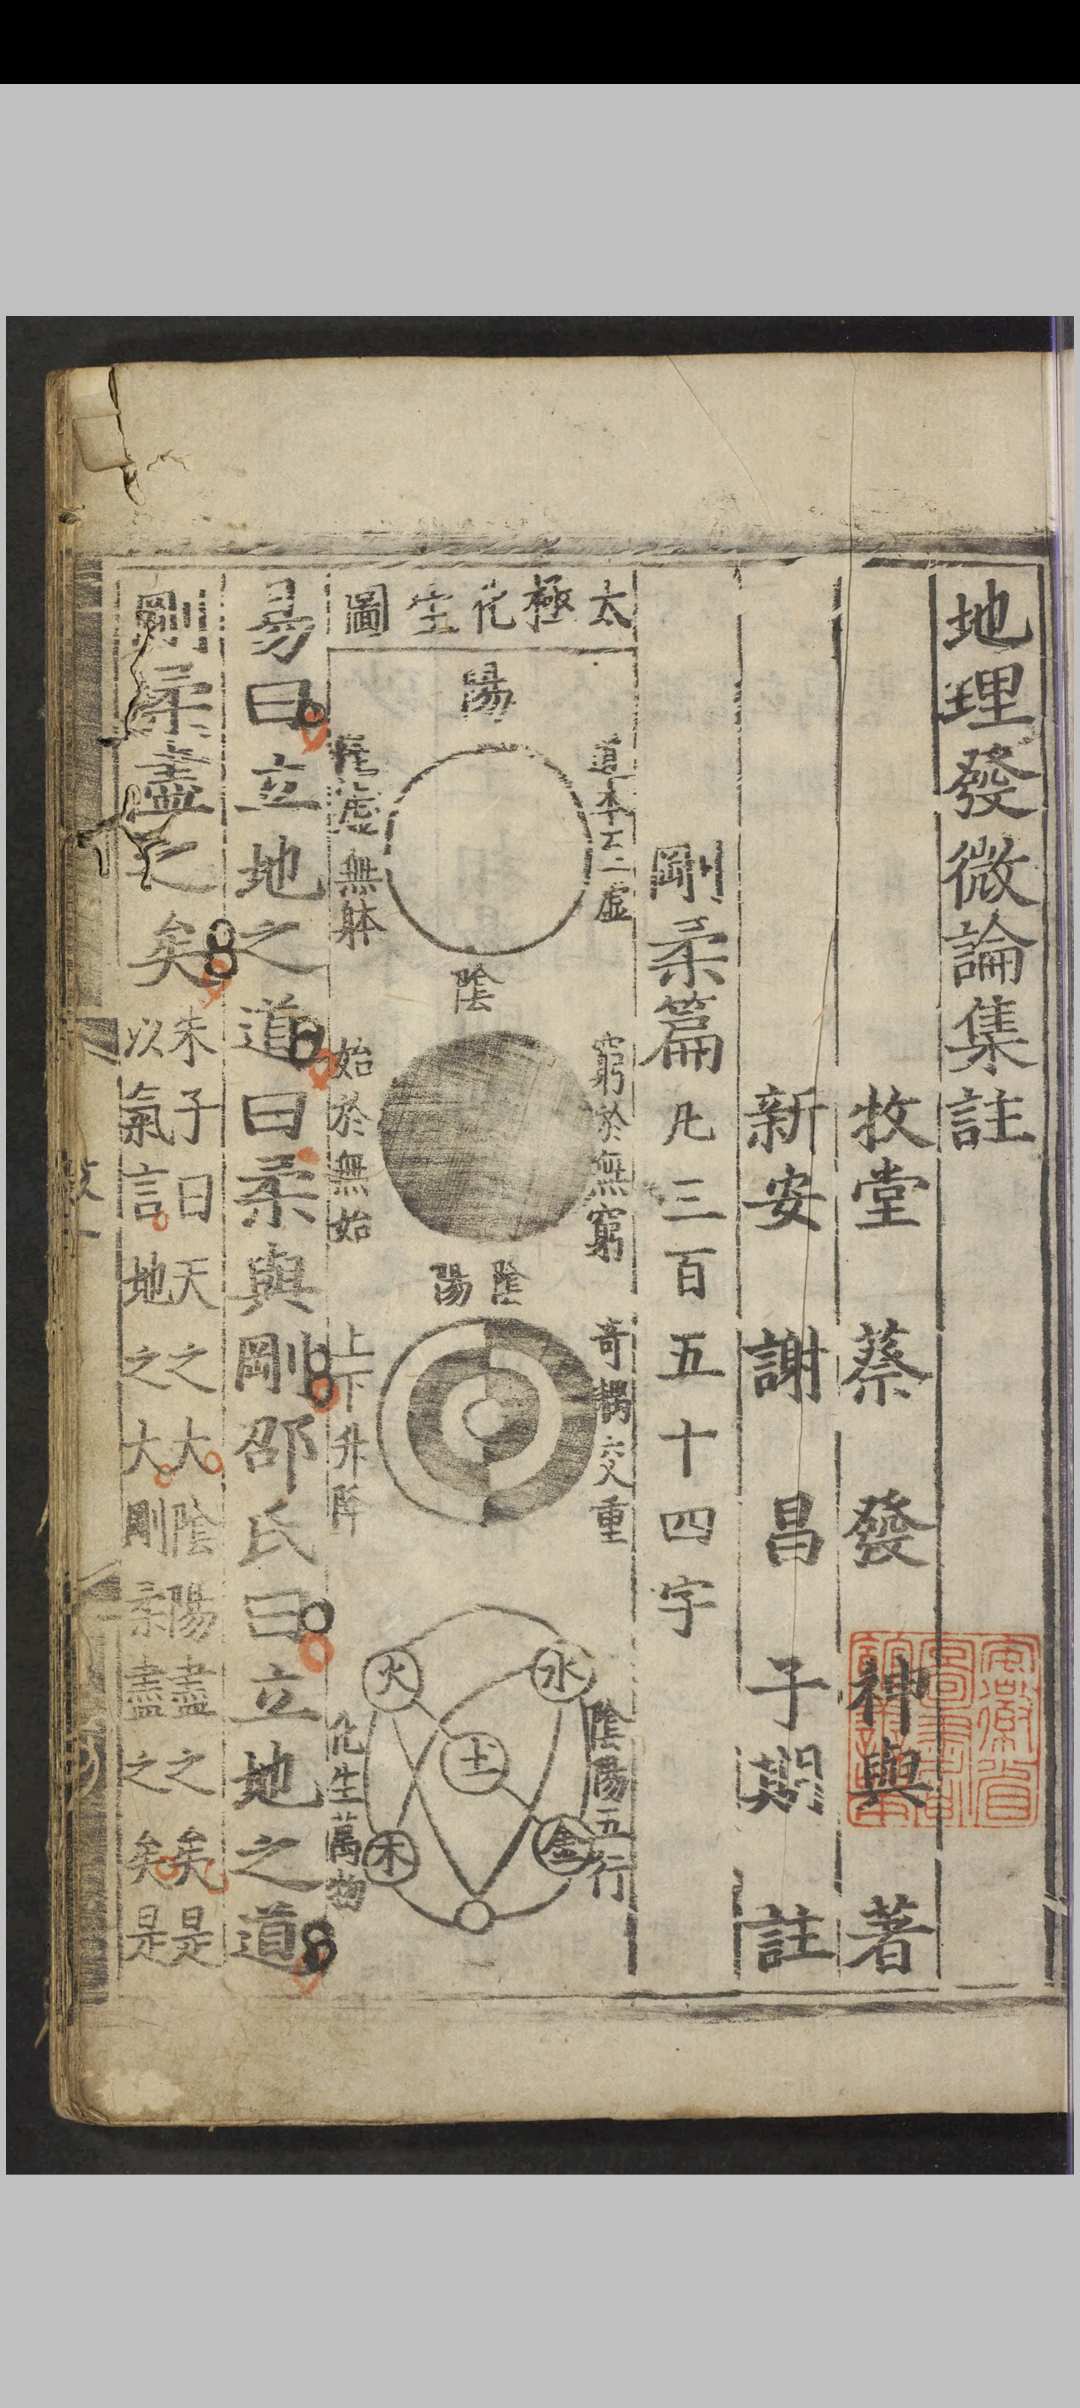 地理發微論集註
牧堂 蔡 發 神與 著
新安 謝 昌 子期 註
剛柔篇凡三百五十四字
太極化生圖
陽
道本至虛
至虛無体
陰
窮於無窮
始於無始
陰陽
奇耦交重
上下升降
陰陽五行
化生萬物
水
火
土
金
木
易曰立地之道曰柔與剛邵氏曰立地之道
剛柔盡之矣
朱子曰天之大陰陽盡之矣是
以氣言地之大剛柔盡之矣是